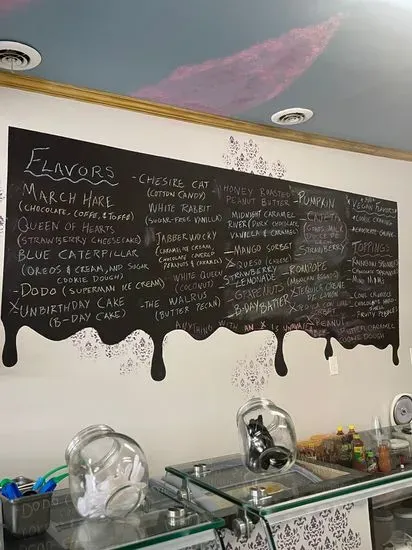 FLAVORS
MARCH HARE
(CHOCOLATE, COFFEE, & TOFFEE)
QUEEN OF HEARTS
(STRAWBERRY CHEESECAKE)
BLUE CATERPILLAR
(OREOS & CREAM, AND SUGAR
COOKIE DOUGH)
-DODO (SUPERMAN ICE CREAM)
X UNBIRTHDAY CAKE
(B-DAY CAKE)
-CHESIRE CAT
(COTTON CANDY)
WHITE RABBIT
(SUGAR-FREE VANILLA)
JABBERWOCKY
(CARAMEL ICE CREAM,
CHOCOLATE COVERED
PEANUTS & CARAMEL)
WHITE QUEEN
(COCONUT)
-THE WALRUS
(BUTTER PECAN)
HONEY ROASTED
PEANUT BUTTER
MIDNIGHT CARAMEL
RIVER (DARK CHOCOLATE
VANILLA & CARAMEL)
-MANGO SORBET
X QUESO (CHEESE)
STRAWBERRY
LEMONADE
-GRAPENUT
-B-DAY BATTER
ANYTHING WITH AN X IS
-PUMPKIN
STRAWBERRY
ROMPOPE
PEANUT
VEGAN FLAVORS
TOPPINGS
RAINBOW SPRINKLES
CHOCOLATE SPRINKLES
MINI M&MS
FRUITY PEBBLES
CARAMEL
COOKIE DOUGH